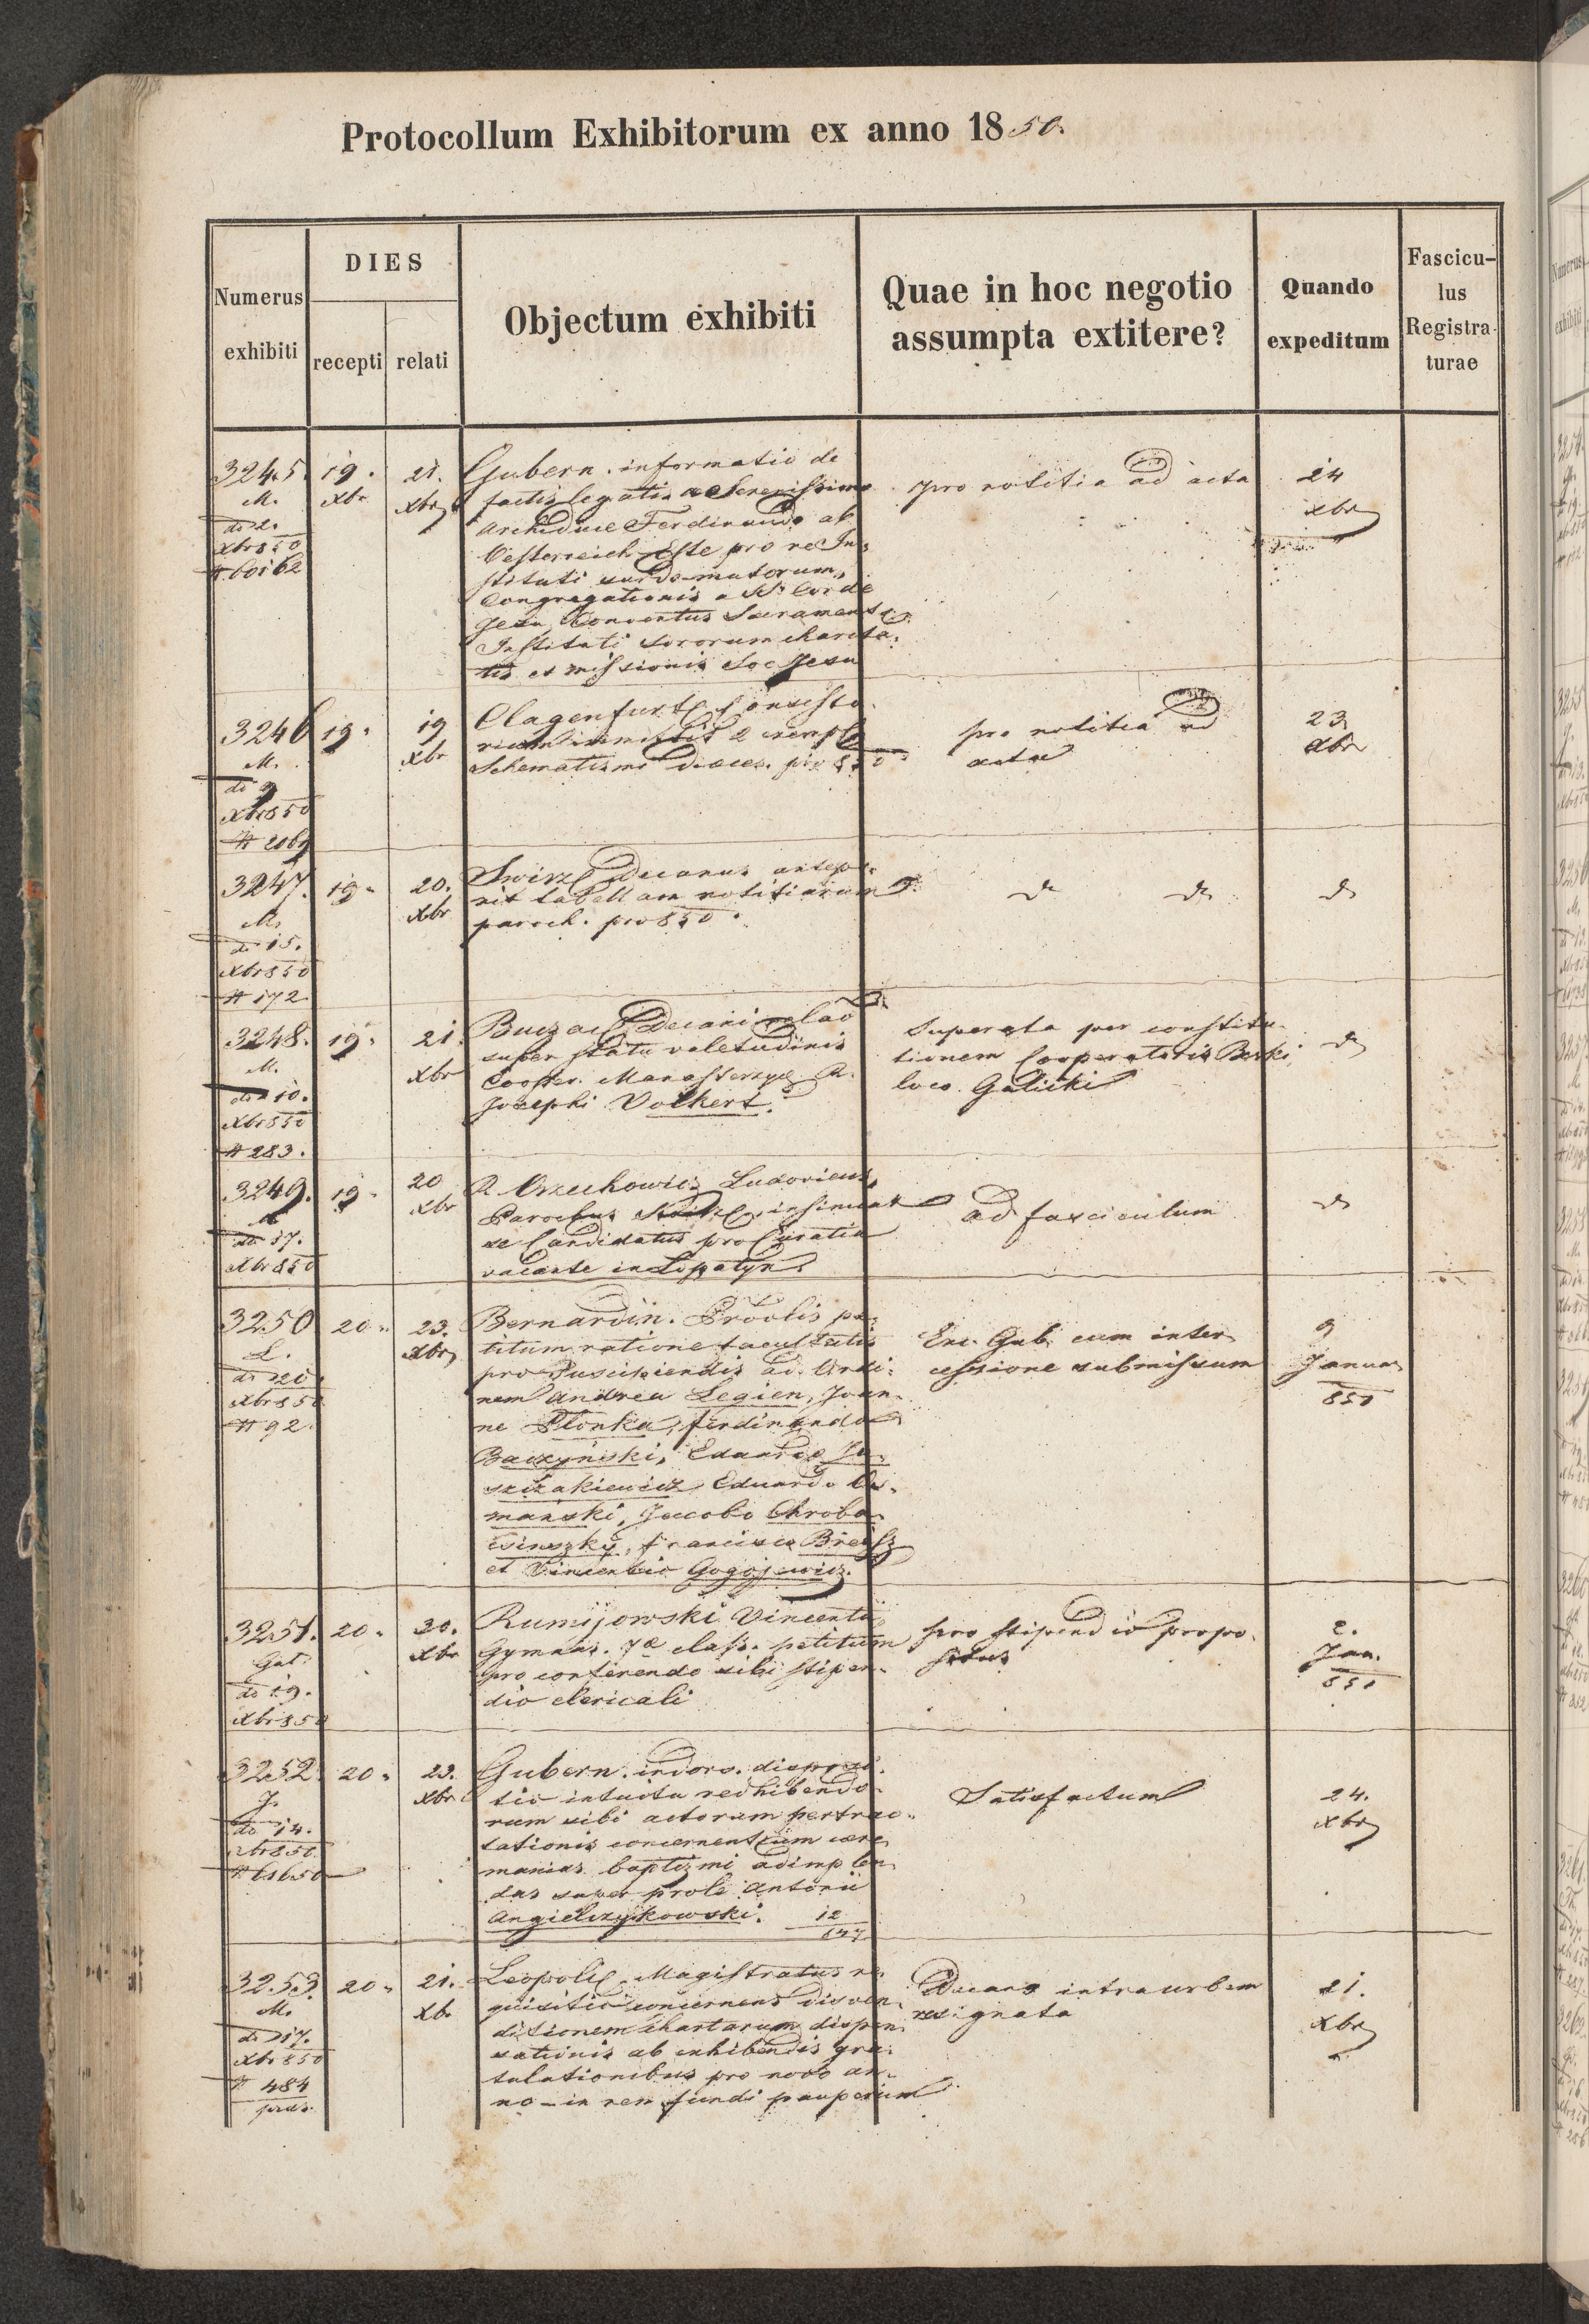 Protocollum Exhibitorum ex anno 1850.
Numerus exhibiti
DIES
recepti
relati
Objectum exhibiti
Quae in hoc negotio
assumpta extitere?
Quando
expeditum
Fascicu-
lus
Registra-
turae
3245. 19. 21.
M. Xbr Xbr
do 2.
Xbr 850
# 60162
Gubern. informatio de
factis legatis a Serenissimo
Archiduce Ferdinando ab
Oesterreich-Este pro re In-
stituti surdo-mutorum,
Congregationis a SS. Corde
Jesu, Conventus Sacrament.
Instituti sororum charita-
tis et missionis Soc Jesu
pro notitia ad acta
24
Xbr
3246 19. 19
M. Xbr
do 9
Xbr 850
# 2069
Clagenfurt Consisto-
rium 2 exempl
Schematismi dioeces. pro 850
pro notitia ad
acta
23
Xbr
3247. 19. 20.
M. Xbr
do 15.
Xbr 850
# 172
Swirz Decanus
rit tabellam notitiarum
paroch. pro 850.
do do do
3248. 19. 21
M. Xbr
do 10.
Xbr 850
# 283.
Buczac Decani relao
super statu valetudinis
Cooper. Manasterzyc R.
Josephi Volkert.
Superata per constitu-
tionem Cooperatoris Berski
loco Galicki
do
3249. 19. 20
M Xbr
do 17.
Xbr 850
R Orzechowicz Ludovicus
Parochus insinuat
se Candidatum pro Curatia
vacante in Lopatyn
ad fasciculum
do
3250 20. 23.
L. Xbr
do 20
Xbr 850
# 92.
Bernardin. Provlis pe-
titum ratione facultatis
pro suscipiendis ad Ordi-
nem Andrea Legien, Joan-
ne Plonka, Ferdinando
Baczynski, Eduardo Ju-
szczakiewicz Eduardo
manski, Jacobo Chroba-
et Vincentio Gogojewicz.
Exc. Gub. cum inter-
cessione submissum
9
Januar
851
3251. 20. 20.
Gal. Xbr
do 19.
Xbr 850
Rumijowski Vincenti
Gymnas. 7æ class. petitum
pro conferendo sibi stipen-
dio clericali
pro stipendio propo-
situs
2.
Jan.
851
3252 20. 23.
J. Xbr
do 14.
Xbr 850
# 61650
Gubern. indors.
tio intuitu redhibendo-
rum sibi actorum pertrac-
tationis concernentium caere-
monias baptizmi adimplen-
das super prole Antonii
Angielczykowski. 12
647
Satisfactum
24.
Xbr
3253. 20. 21.
M. Xb.
do 17.
Xbr 850
# 484
praes.
Leopoli Magistratus re-
quisitio concernens disven-
ditionem chartarum dispen-
sationis ab exhibendis gra-
tulationibus pro novo an-
no - in rem fundi pauperum
Decano intra urbem
resignata
21.
Xbr